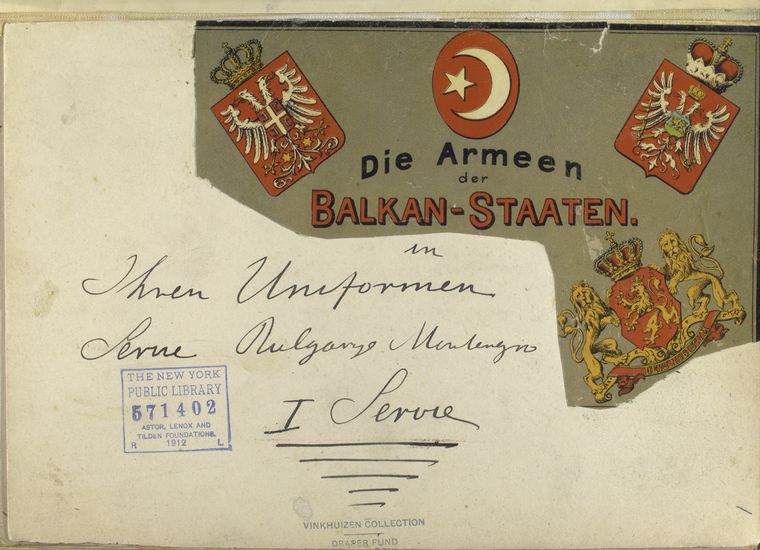 Die Armeen
der
BALKAN-STAATEN.
in
Ihren Uniformen
Servie Bulgarye Montenegro
I Servie
THE NEW YORK
PUBLIC LIBRARY
571402
ASTOR, LENOX AND
TILDEN FOUNDATIONS.
R 1912 L
VINKHUIZEN COLLECTION
DRAPER FUND